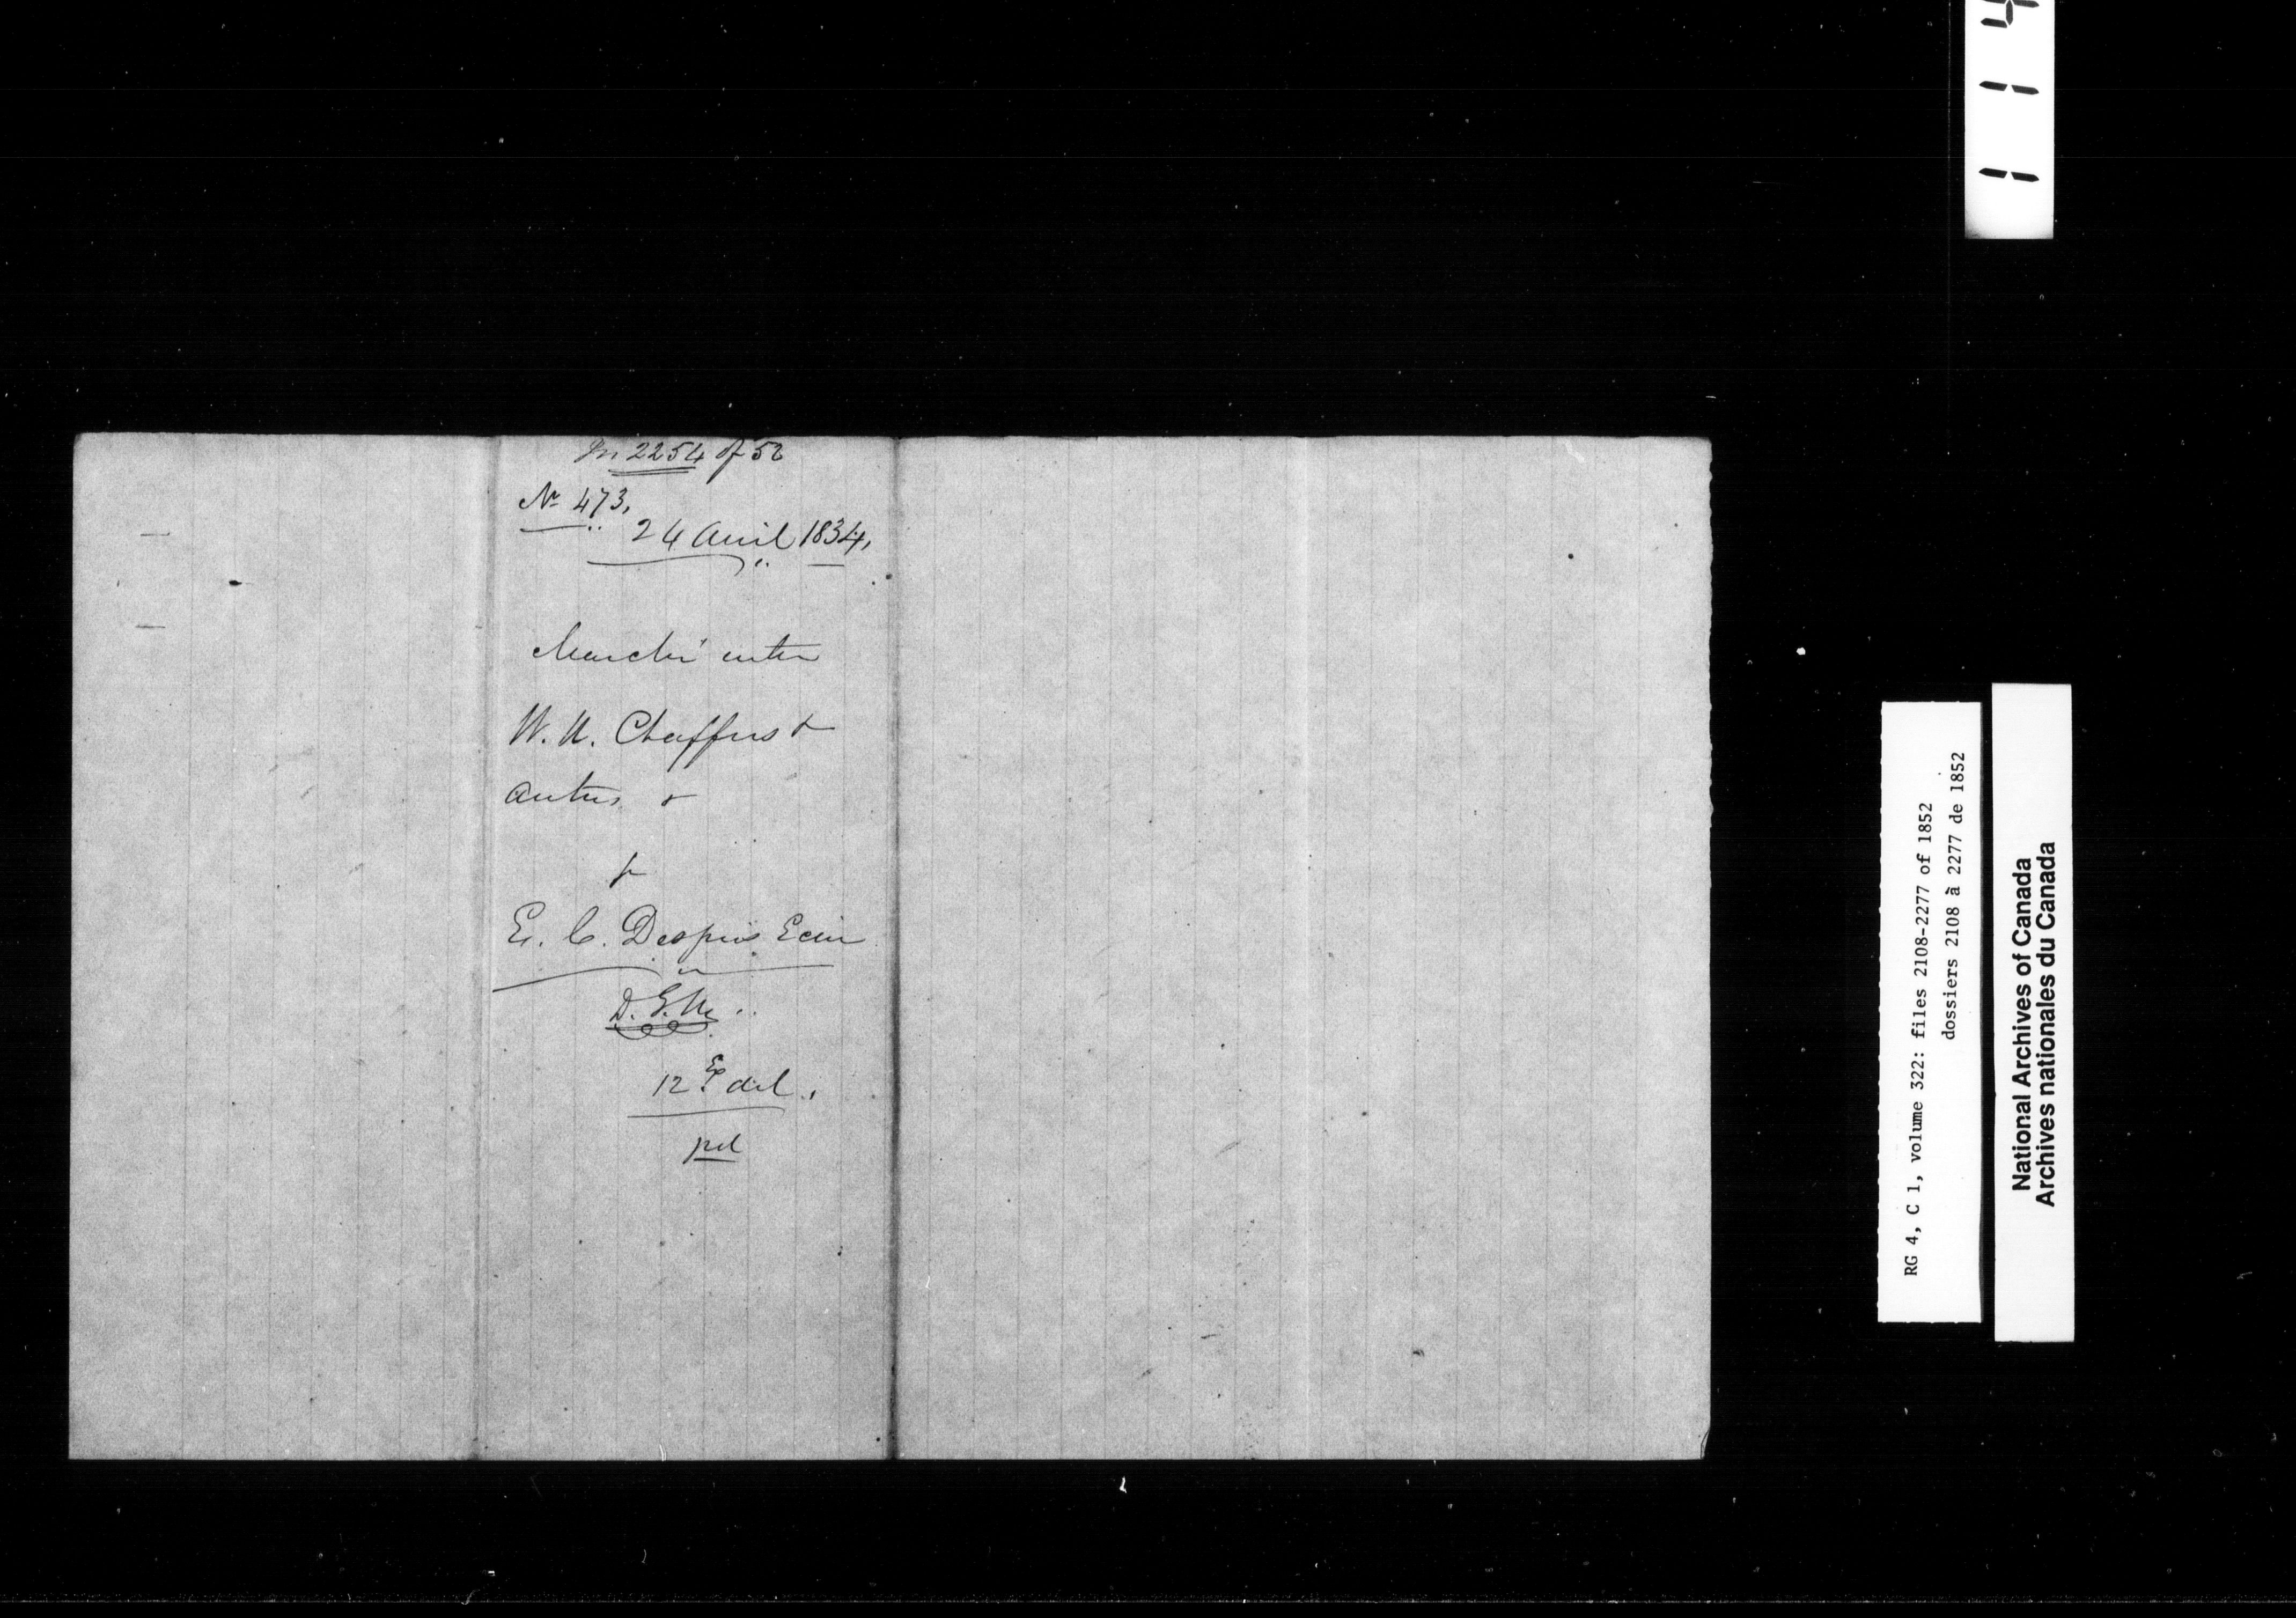 In 2254 of 52
No 473.
24 Avril 1834.
Marché entre
W. U. Chaffers &
autres &
&
E. C. Despins Ecuier
D. G. M.
12 Ex del.
pd
114
RG 4, C 1, volume 322: files 2108-2277 of 1852
dossiers 2108 à 2277 de 1852
National Archives of Canada
Archives nationales du Canada